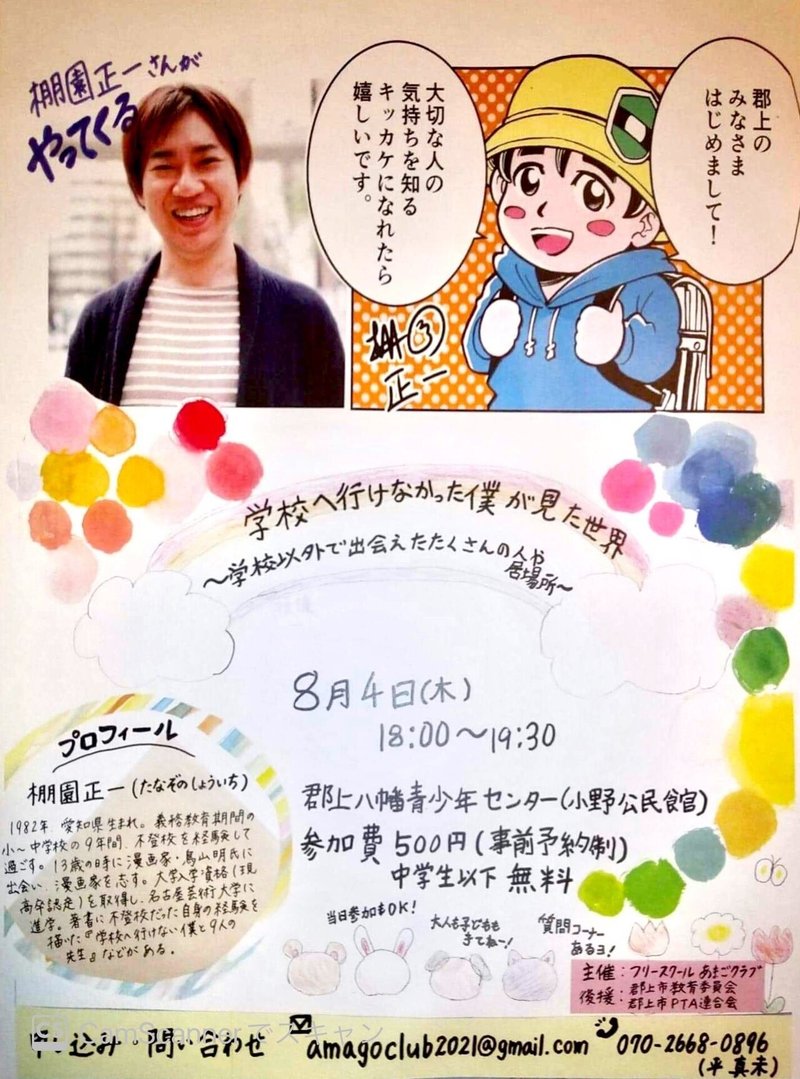 棚園正一さんが
やってくる
郡上の
みなさま
はじめまして！
大切な人の
気持ちを知る
キッカケになれたら
嬉しいです。
正一
学校へ行けなかった僕が見た世界
〜学校以外で出会えたたくさんの人や
居場所〜
8月4日(木)
18:00〜19:30
郡上八幡青少年センター(小野公民館)
参加費 500円(事前予約制)
中学生以下 無料
プロフィール
棚園正一(たなぞのしょういち)
1982年 愛知県生まれ。義務教育期間の
小〜中学校の9年間、不登校を経験して
過ごす。13歳の時に漫画家・鳥山明氏に
出会い、漫画家を志す。大学入学資格(現
高卒認定)を取得し、名古屋芸術大学に
進学。著書に不登校だった自身の経験を
描いた『学校へ行けない僕と9人の
先生』などがある。
当日参加もOK!
大人も子どもも
きてねー!
質問コーナー
あるヨ!
主催：フリースクール あまごクラブ
後援：郡上市教育委員会
郡上市PTA連合会
CamScannerでスキャン
申し込み・問い合わせ amagoclub2021@gmail.com 070-2668-0896
(平 真未)